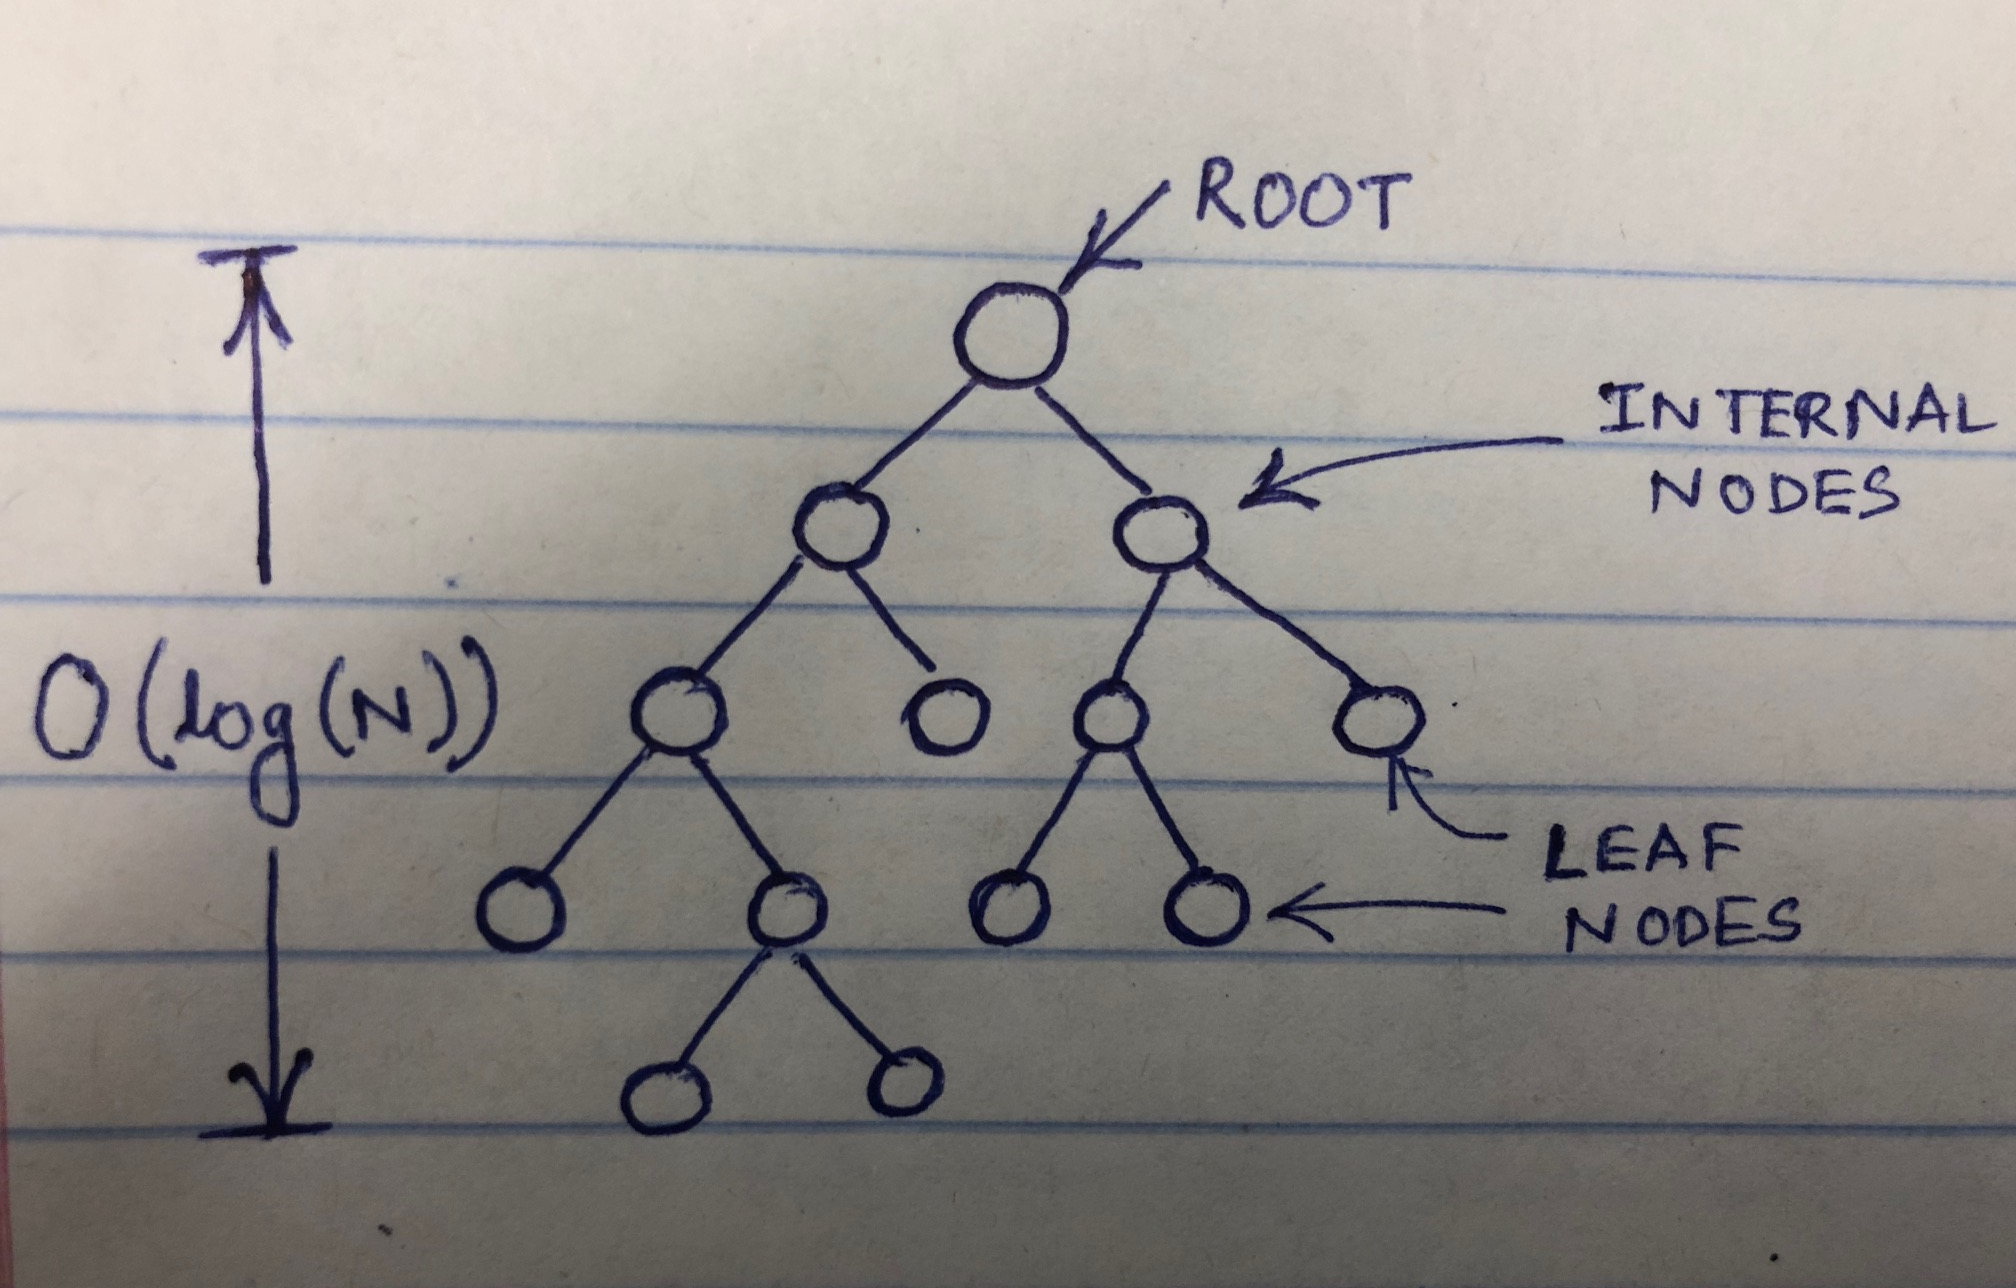 ROOT
INTERNAL
NODES
O(log(N))
LEAF
NODES